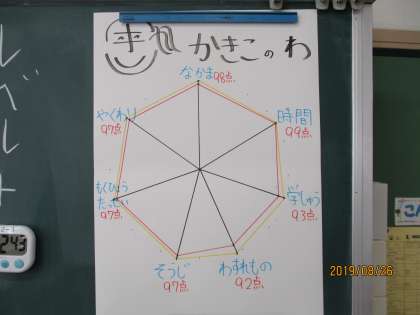 かきこのわ
なかま
98点
時間
99点
学しゅう
93点
わすれもの
92点
そうじ
97点
もくひょう
たっせい
97点
やくわり
97点
レベル
2019/08/26